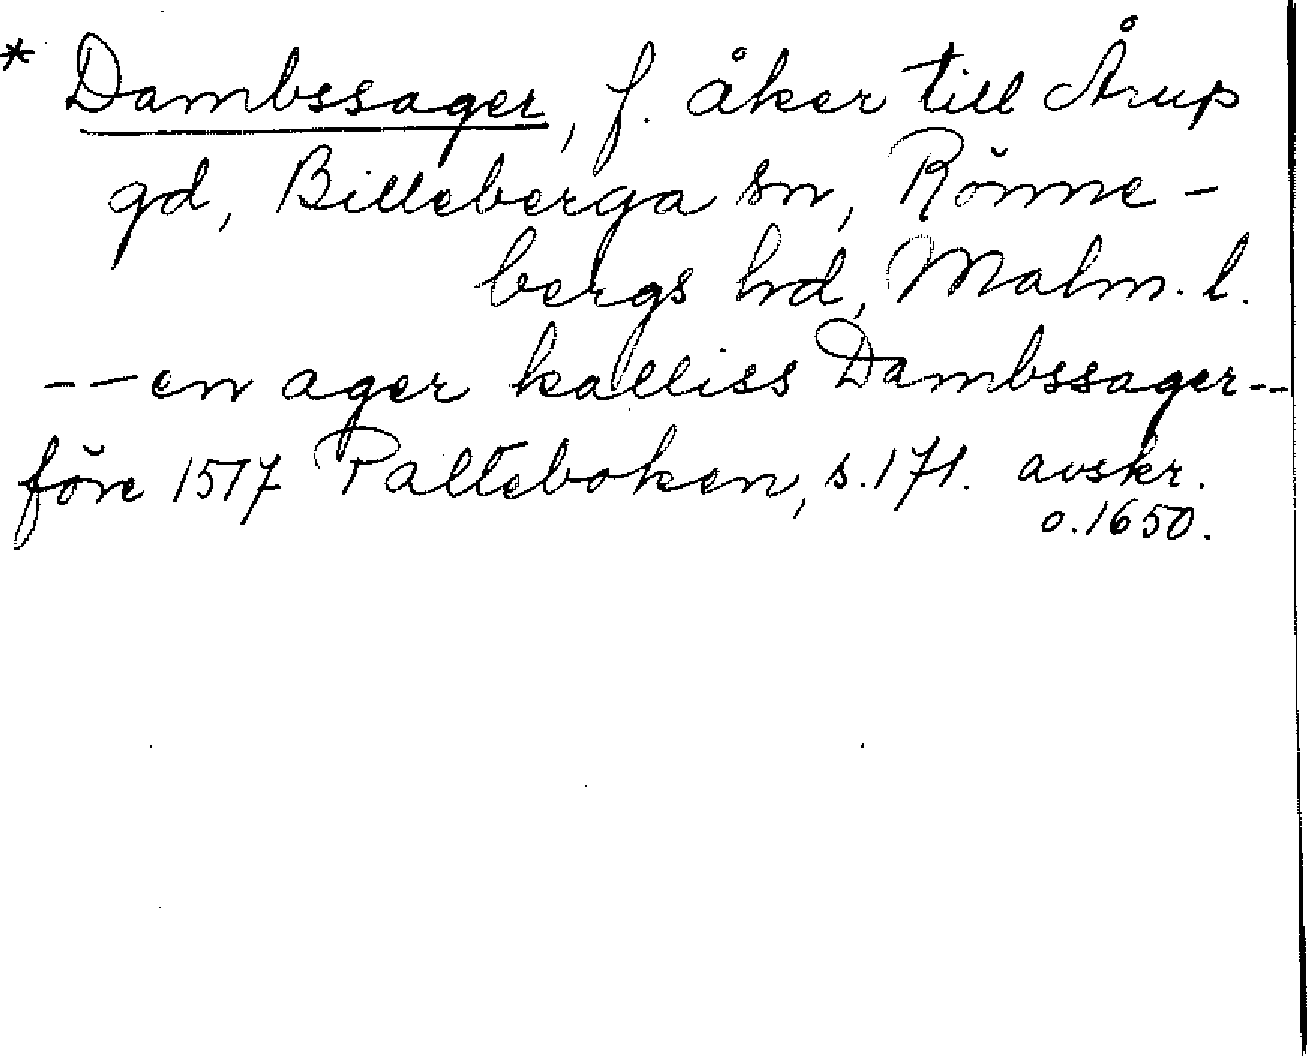 * Dambssager, f. åker till Årup
gd, Billeberga sn, Rönne-
bergs hd, Malm. l.
-- en ager kalliss Dambssager --
före 1517 Palteboken, s. 171. avskr.
o. 1650.